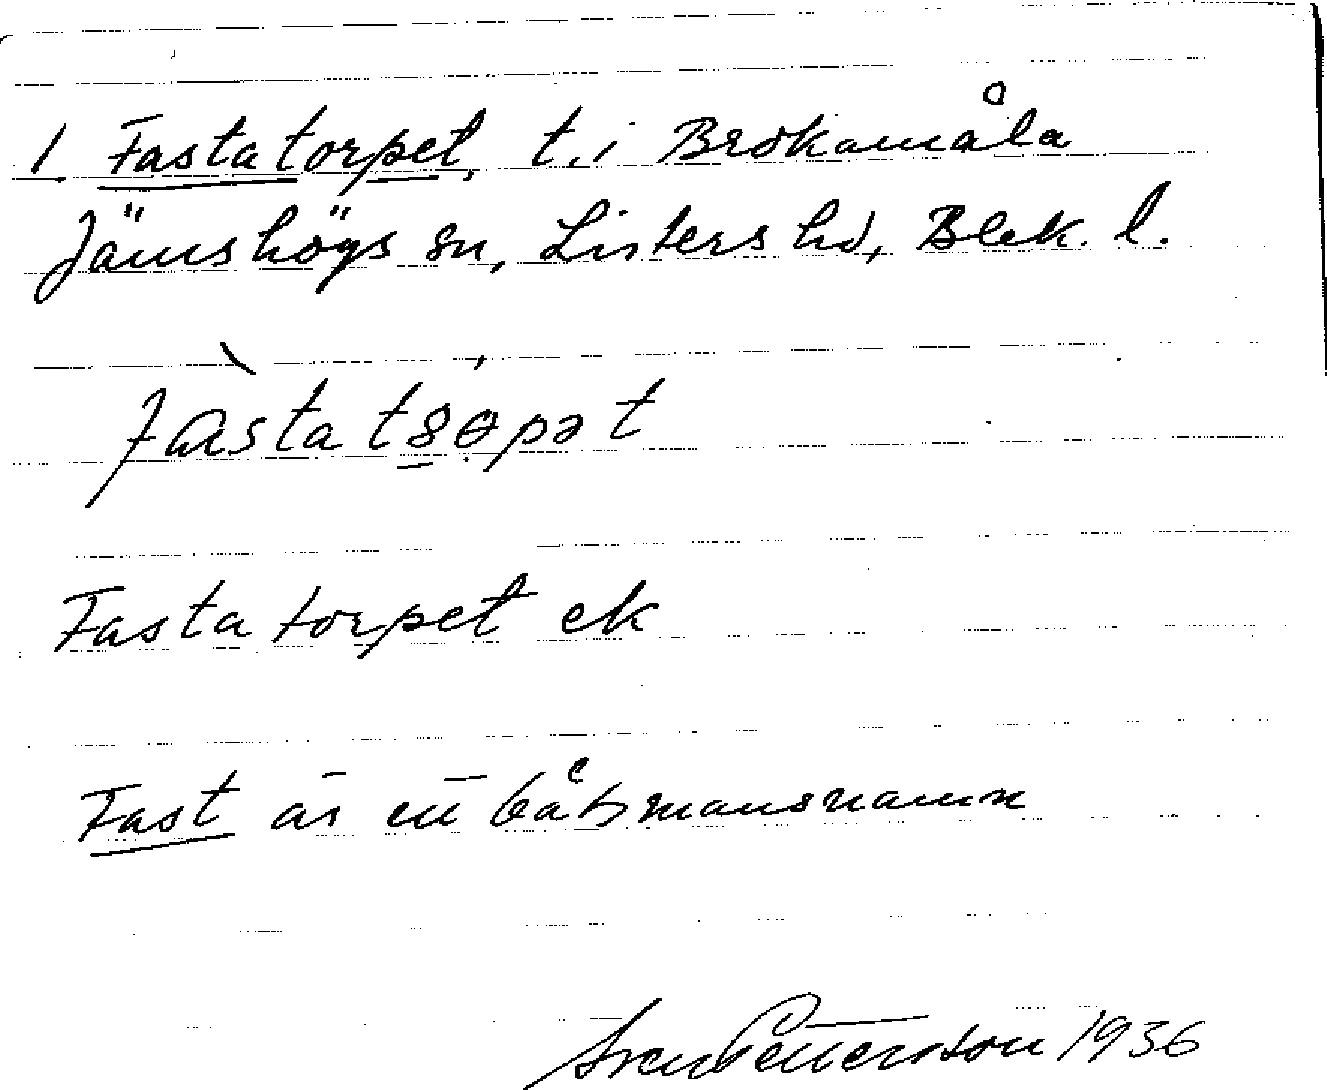 1. Fastatorpet, t. i Brokamåla
Jämshögs sn, Listers hd, Blek. l.
Fastatorpet ek
Fast är en båtsmansnamn
Sven Pettersson 1936